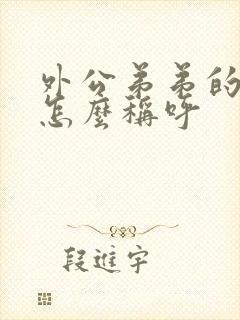 外公弟弟的
怎麼稱呼
段進宇